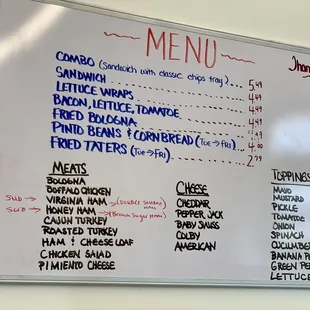 MENU
COMBO (Sandwich with classic chips tray) 5.49
SANDWICH 4.49
LETTUCE WRAPS 4.49
BACON, LETTUCE, TOMATOE 4.49
FRIED BOLOGNA 4.49
PINTO BEANS & CORNBREAD (TUE→FRI) 4.00
FRIED TATERS (TUE→FRI) 2.79
MEATS
BOLOGNA
BUFFALO CHICKEN
SUB → VIRGINIA HAM → (Double Smoked
HONEY HAM
CAJUN TURKEY
ROASTED TURKEY
HAM & CHEESE LOAF
CHICKEN SALAD
PIMIENTO CHEESE
SUB → → (Brown Sugar Ham)
CHEESE
CHEDDAR
PEPPER JACK
BABY SWISS
COLBY
AMERICAN
TOPPINGS
MAYO
MUSTARD
PICKLE
TOMATOE
ONION
SPINACH
CUCUMBE
BANANA P
GREEN PE
LETTUCE